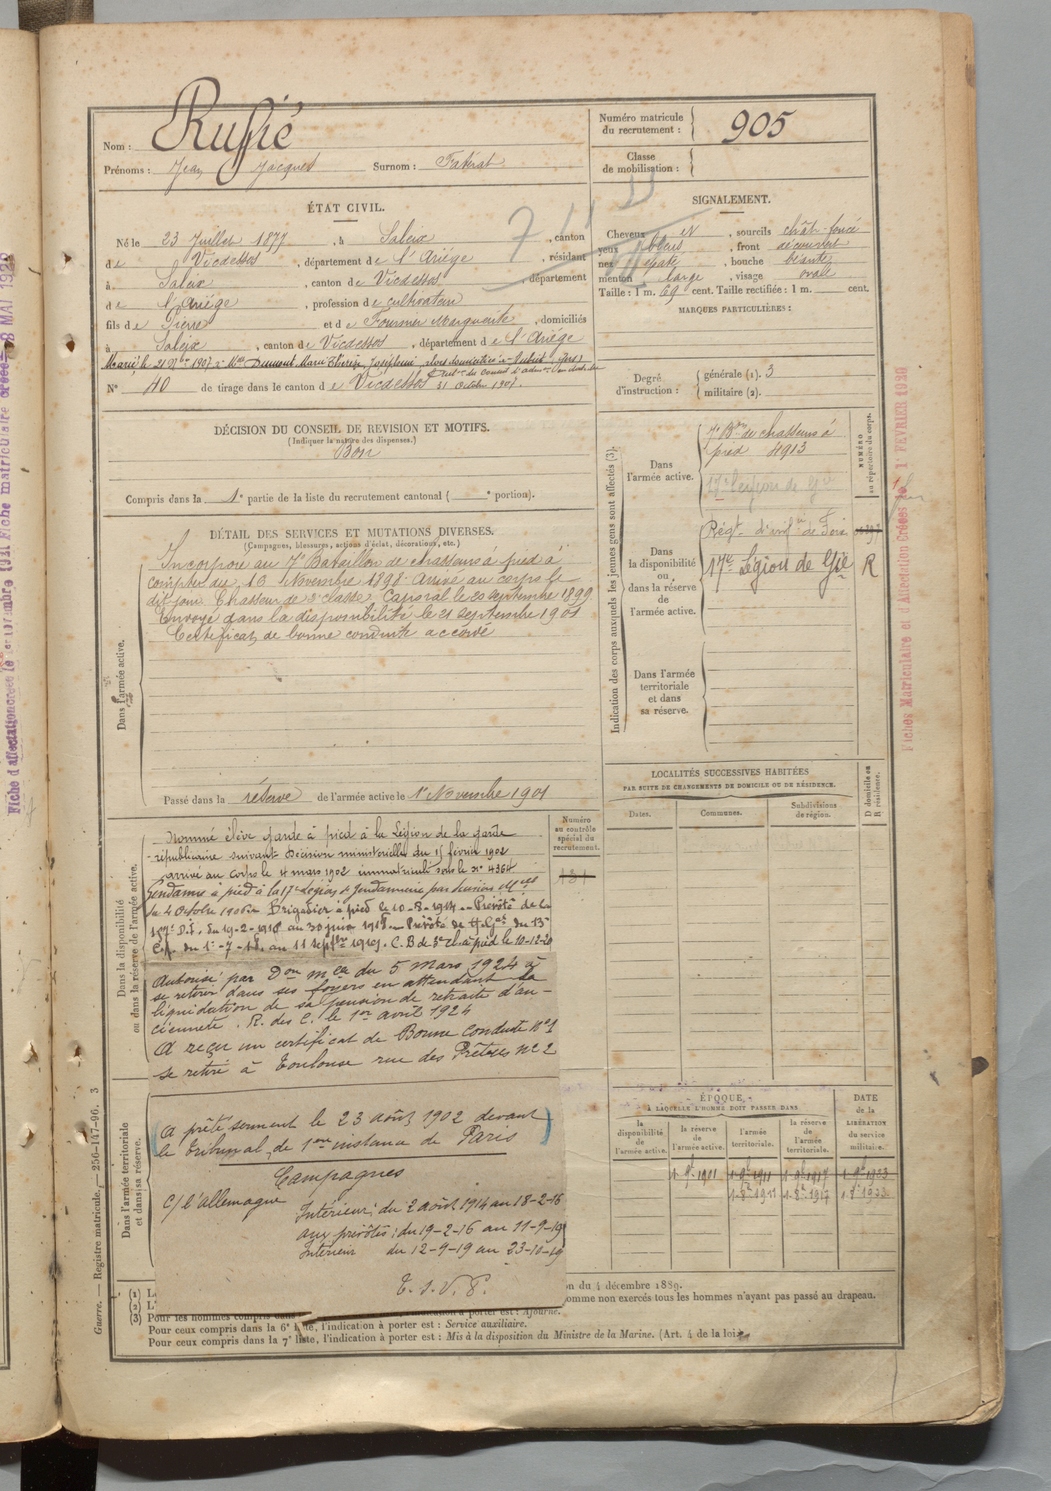 Nom : Ruffié
Prénoms : Jean Jacques Surnom :
Numéro matricule du recrutement : 905
Classe de mobilisation :
ÉTAT CIVIL.
Né le 23 Juillet 1877, à Saleix, canton
de Vicdessos, département de l'Ariége, résidant
à Saleix, canton de Vicdessos, département
de l'Ariége, profession de cultivateur
fils de Pierre et de Fournier Marguerite, domiciliés
à Saleix, canton de Vicdessos, département de l'Ariége
N° 40 de tirage dans le canton de Vicdessos 31 Octobre 1907.
SIGNALEMENT.
Cheveux et, sourcils chât. foncé
yeux bleus, front découvert
nez épaté, bouche béante
menton large, visage ovale
Taille : 1 m. 69 cent. Taille rectifiée : 1 m. cent.
MARQUES PARTICULIÈRES :
Degré d'instruction : générale (1). 3
militaire (2).
DÉCISION DU CONSEIL DE REVISION ET MOTIFS.
(Indiquer la nature des dispenses.)
Bon
Compris dans la 1e partie de la liste du recrutement cantonal ( e portion).
Indication des corps auxquels les jeunes gens sont affectés (3).
NUMÉRO au répertoire du corps.
Dans l'armée active.
7e Bon de chasseurs à
pied 4913
17e Légion de Gie
Dans la disponibilité ou dans la réserve de l'armée active.
Régt d'infie de Foix
17e Légion de Gie R
Dans l'armée territoriale et dans sa réserve.
DÉTAIL DES SERVICES ET MUTATIONS DIVERSES.
(Campagnes, blessures, actions d'éclat, décorations, etc.)
Dans l'armée active.
Incorporé au 7e Bataillon de chasseurs à pied à
compter du 10 Novembre 1898. Arrivé au corps le
dit jour. Chasseur de 2e classe. Caporal le 20 septembre 1899
Envoyé dans la disponibilité le 21 septembre 1901
Certificat de bonne conduite accordé
Passé dans la réserve de l'armée active le 1er Novembre 1901
Dans la disponibilité ou dans la réserve de l'armée active.
Numéro au contrôle spécial du recrutement.
Nommé élève garde à pied à la Légion de la garde
républicaine suivant Décision ministérielle du 15 février 1902
arrivé au corps le 4 mars 1902 immatriculé sous le n° 4364
Gendarme à pied à la 17e Légion de Gendarmerie par décision Mlle
du 4 Octobre 1906. Brigadier à pied le 10-8-1914. Prévôté de la
D.I. du 19-2-1916 au 30 juin 1918. Prévôté de du 13e
C.A. du 1er-7-18 au 11 septbre 1919. C. B de 3e cl. à pied le 10-12-20
Autorisé par Don mle du 5 mars 1924 à
se retirer dans ses foyers en attendant la
liquidation de sa pension de retraite d'an-
cienneté. R. des C. le 1er avril 1924
A reçu un certificat de Bonne Conduite N°1
se retire à Toulouse rue des Prêtres n° 2
Dans l'armée territoriale et dans sa réserve.
A prêté serment le 23 août 1902 devant
le Tribunal de 1ère instance de Paris
Campagnes
C/ l'allemagne
Intérieur : du 2 août 1914 au 18-2-16
aux prévôtés : du 19-2-16 au 11-9-19
Intérieur du 12-9-19 au 23-10-19
T. S. V. P.
LOCALITÉS SUCCESSIVES HABITÉES
PAR SUITE DE CHANGEMENTS DE DOMICILE OU DE RÉSIDENCE.
Dates. Communes. Subdivisions de région. D domicile ou R résidence.
ÉPOQUE
À LAQUELLE L'HOMME DOIT PASSER DANS
la disponibilité de l'armée active.
la réserve de l'armée active.
l'armée territoriale.
la réserve de l'armée territoriale.
DATE de la LIBÉRATION du service militaire.
on du 4 décembre 1889.
omme non exercés tous les hommes n'ayant pas passé au drapeau.
l'indication à porter est : Ajourné.
Pour ceux compris dans la 6e liste, l'indication à porter est : Service auxiliaire.
Pour ceux compris dans la 7e liste, l'indication à porter est : Mis à la disposition du Ministre de la Marine. (Art. 4 de la loi.)
Guerre. — Registre matricule. — 256-147-96. 3
Fiches Matriculaire et d'Affectation Créées le 1 FEVRIER 1920